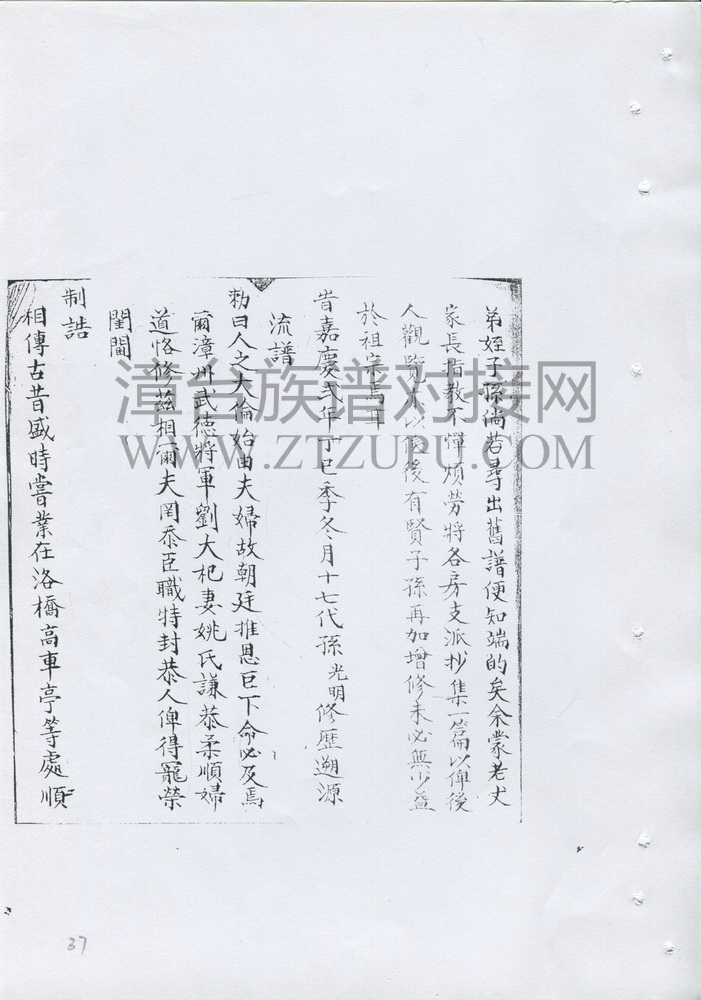 弟姪子孫倘若尋出舊譜便知端的矣余蒙老丈
家長指教不憚煩勞將各房支派抄集一篇以俾後
人觀覽 以 後有賢子孫再加增修未必無少益
於祖宗焉耳
昔嘉慶弍年丁巳季冬月十七代孫光明修歷遡源
流譜
勑曰人之大倫始由夫婦故朝廷推恩臣下命必及焉
爾漳州武德將軍劉大杞妻姚氏謙恭柔順婦
道恪修茲相爾夫罔忝臣職特封恭人俾得寵榮
閨閫
制誥
相傳古昔盛時嘗業在洛橋高車亭等處順
漳台族谱对接网
WWW.ZTZUPU.COM
37